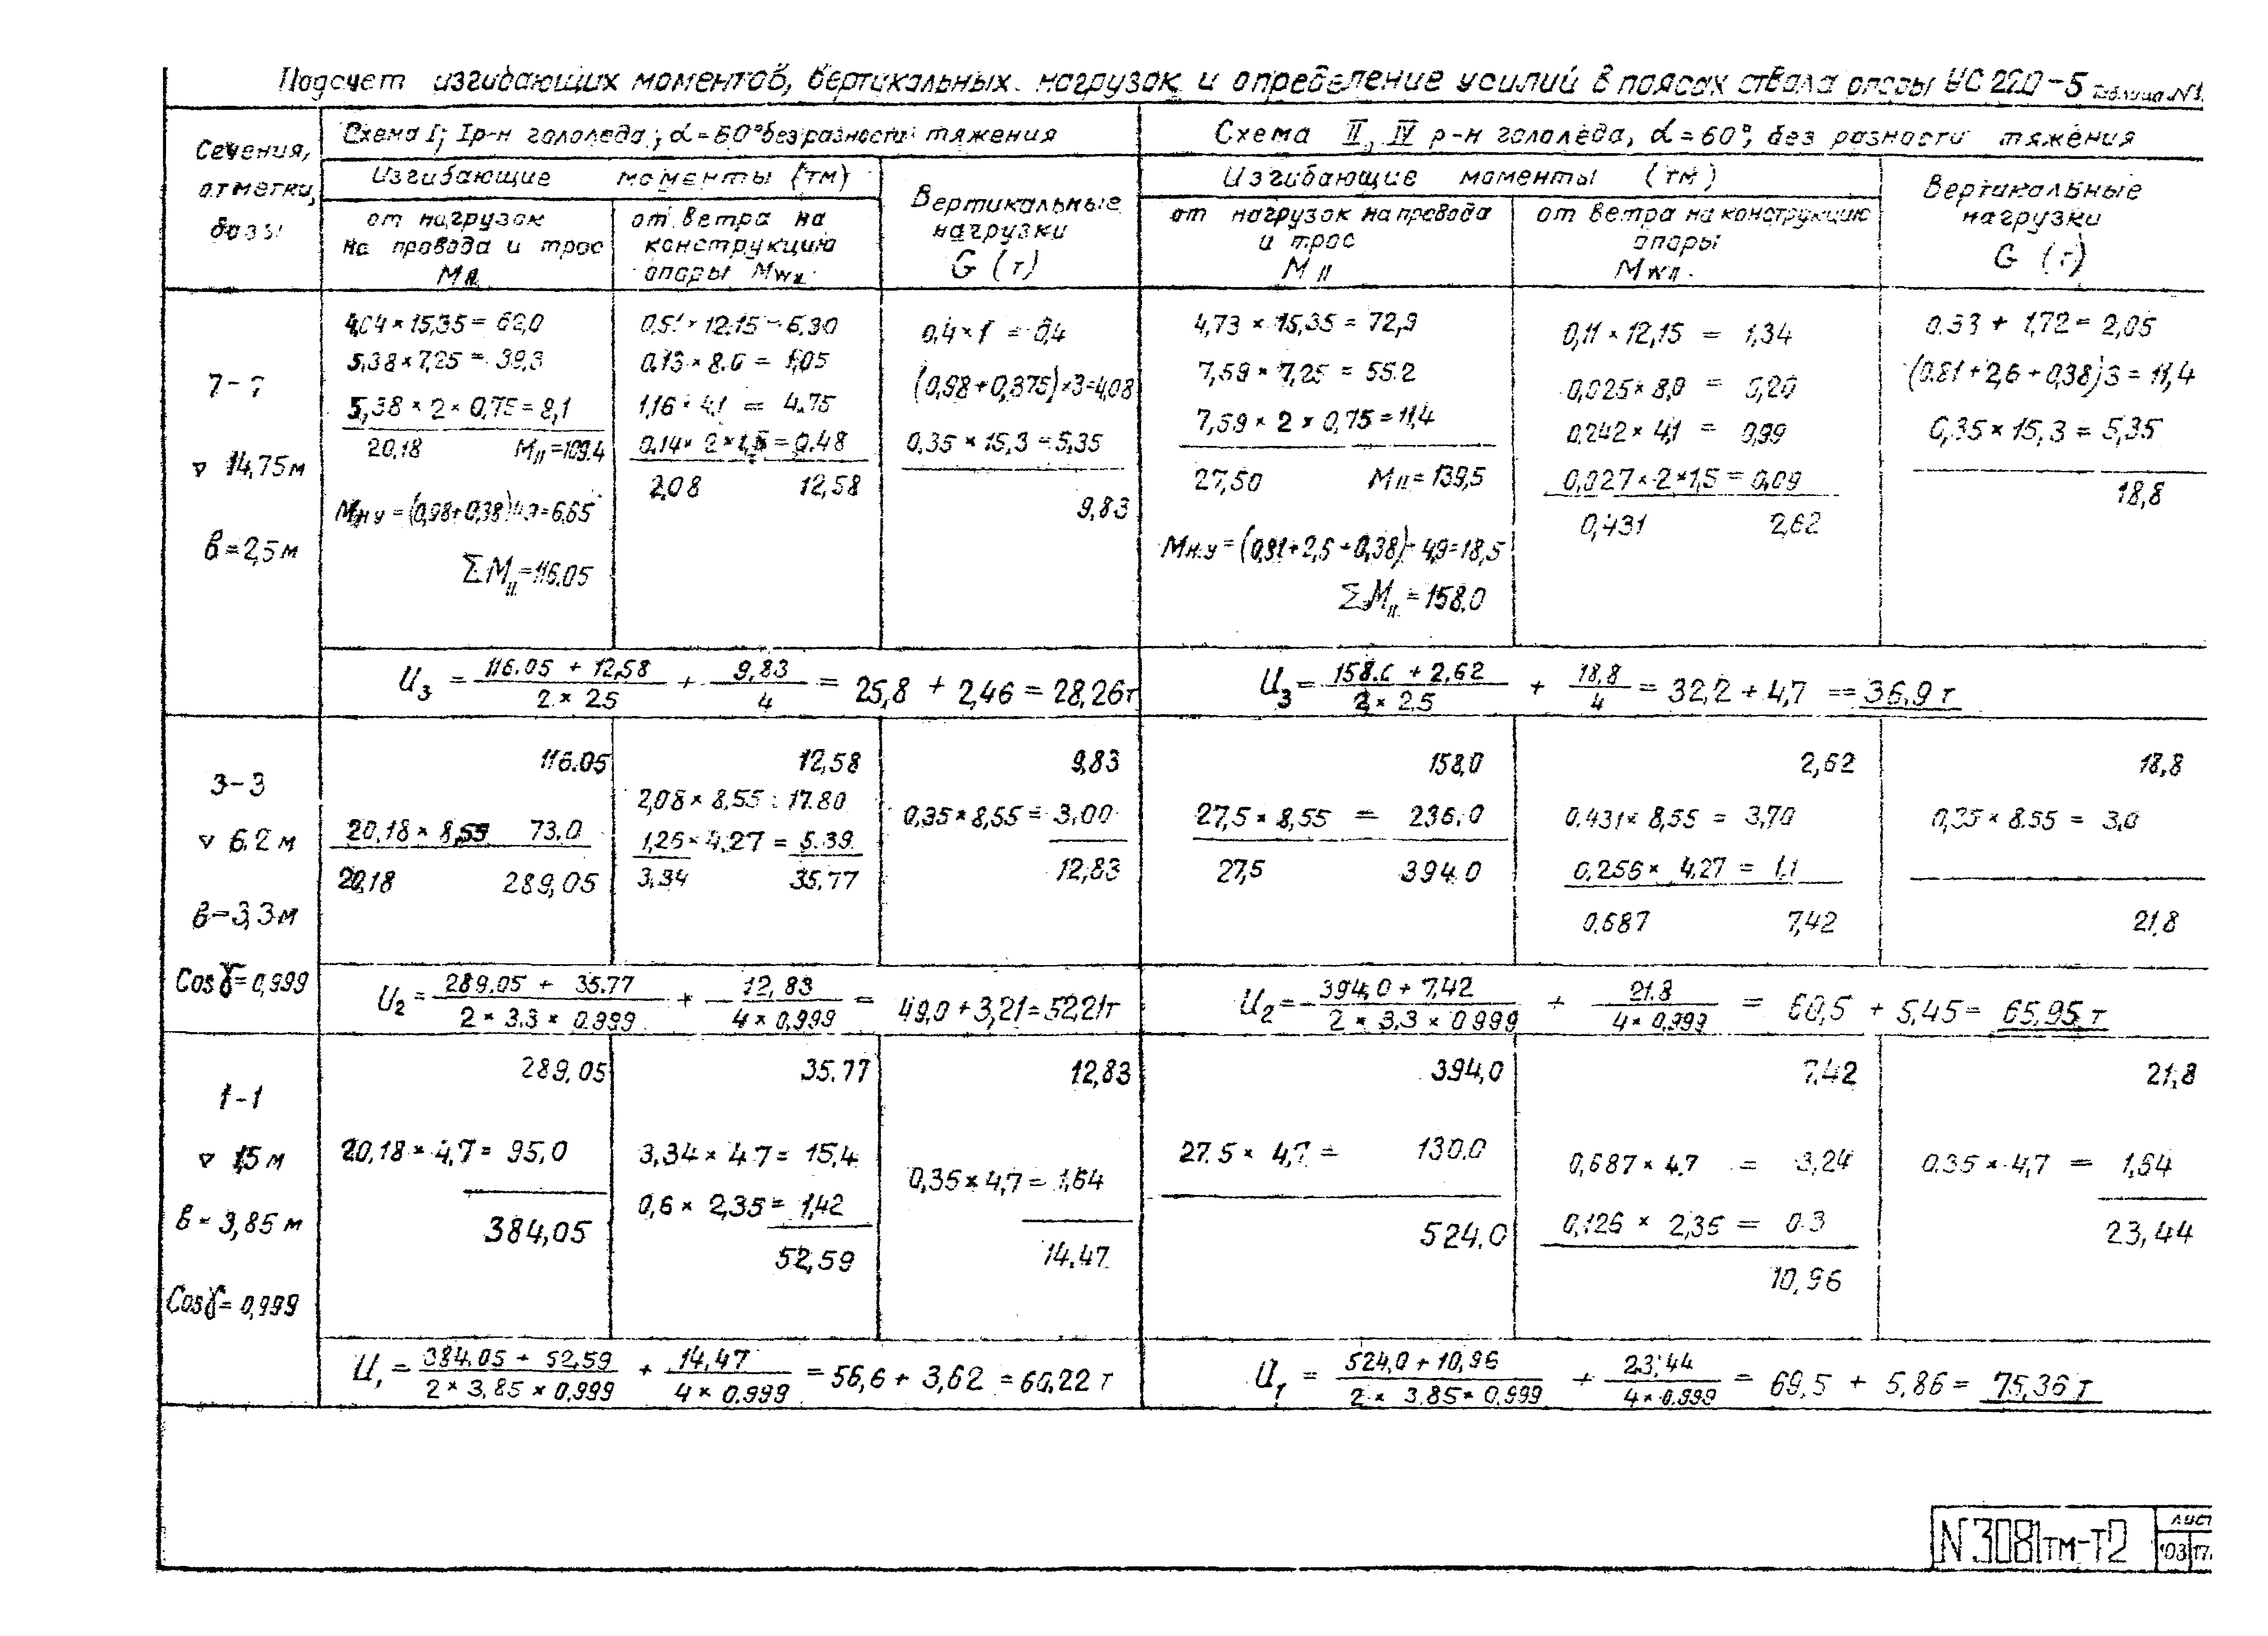 Подсчет изгибающих моментов, вертикальных нагрузок и определение усилий в поясах ствола опоры УС 220-5 Таблица №1.
Сечения, отметки, базы
Схема I; I р-н гололеда; α=60° без разности тяжения
Изгибающие моменты (тм)
от нагрузок
на провода и трос
от ветра на
конструкцию
опоры
Вертикальные
нагрузки
G (т)
Схема II, IV р-н гололеда, α=60°, без разности тяжения
Изгибающие моменты (тм)
от нагрузок на провода
и трос
M II
от ветра на конструкцию
опоры
M WII.
Вертикальные
нагрузки
G (т)
7-7
▽ 14,75м
в=2,5м
4,04×15,35= 62,0
5,38×7,25 = 39,3
5,38×2×0,75=8,1
20.18 M II=109.4
Mну=(0,98+0,38)4,9=6,65
ΣM II=116.05
0,51×12.15=6.30
0.13×8.0= 1,05
1,16×4,1 = 4.75
0.14×2×1,5=0.48
2,08 12,58
0,4×1 = 0,4
(0,98+0,375)×3=4,08
0,35×15,3=5,35
9,83
4,73×15,35= 72,9
7,59×7,25 = 55.2
7,59×2×0,75=11,4
27,50 M II=139,5
Mн.у=(0,81+2,6+0,38)·4,9=18,5
ΣM II=158,0
0,11×12,15 = 1,34
0,025×8,0 = 0,20
0,242×4,1 = 0,99
0,027×2×1,5=0,09
0,431 2,62
0.33+1,72=2,05
(0.81+2,6+0,38)3=11,4
0,35×15,3=5,35
18,8
U3 = (116.05+12,58)/(2×2,5) + 9,83/4 = 25,8+2,46=28,26т
U3= (158.0+2,62)/(2×2.5) + 18,8/4 = 32,2+4,7 = 36,9 т
3-3
▽ 6.2 м
в=3,3м
Cos γ=0,999
116.05
20,18×8,55 73.0
20,18 289,05
12,58
2,08×8,55=17.80
1,26×4,27=5.39
3,34 35.77
9,83
0,35×8,55= 3,00
12,83
158,0
27,5×8,55 = 236.0
27,5 394.0
2,62
0.431×8,55=3,70
0,256×4,27=1,1
0,687 7,42
18,8
0,35×8.55= 3,0
21,8
U2= (289.05+35.77)/(2×3.3×0.999) + 12,83/(4×0,999) = 49,0+3,21=52,21т
U2= (394,0+7,42)/(2×3,3×0.999) + 21.8/(4×0,999) = 60,5+5,45= 65,95 т
1-1
▽ 1,5 м
в=3,85 м
Cos γ=0,999
289,05
20,18×4,7= 95,0
384,05
35.77
3,34×4.7=15,4
0,6×2,35=1,42
52,59
12,83
0,35×4,7=1,64
14.47
394,0
27.5×4,7= 130.0
524,0
7,42
0,687×4,7 = 3,24
0,126×2,35= 0.3
10,96
21,8
0.35×4,7 = 1,64
23,44
U1= (384.05+52,59)/(2×3,85×0,999) + 14,47/(4×0.999) =56,6+3,62=60,22 т
U1 = (524,0+10,96)/(2×3.85×0,999) + 23,44/(4×0.999) = 69,5+5,86= 75,36 т
N 3081тм-Т2
лист
103